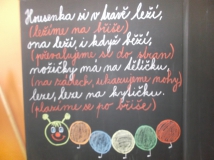 Housenka si v trávě leží,
(ležíme na břiše)
ona leží, i když běží,
(převalujeme se do stran)
nožičky má na tělíčku,
(na zádech, ukazujeme nohy)
leze, leze na kytičku.
(plazíme se po břiše)